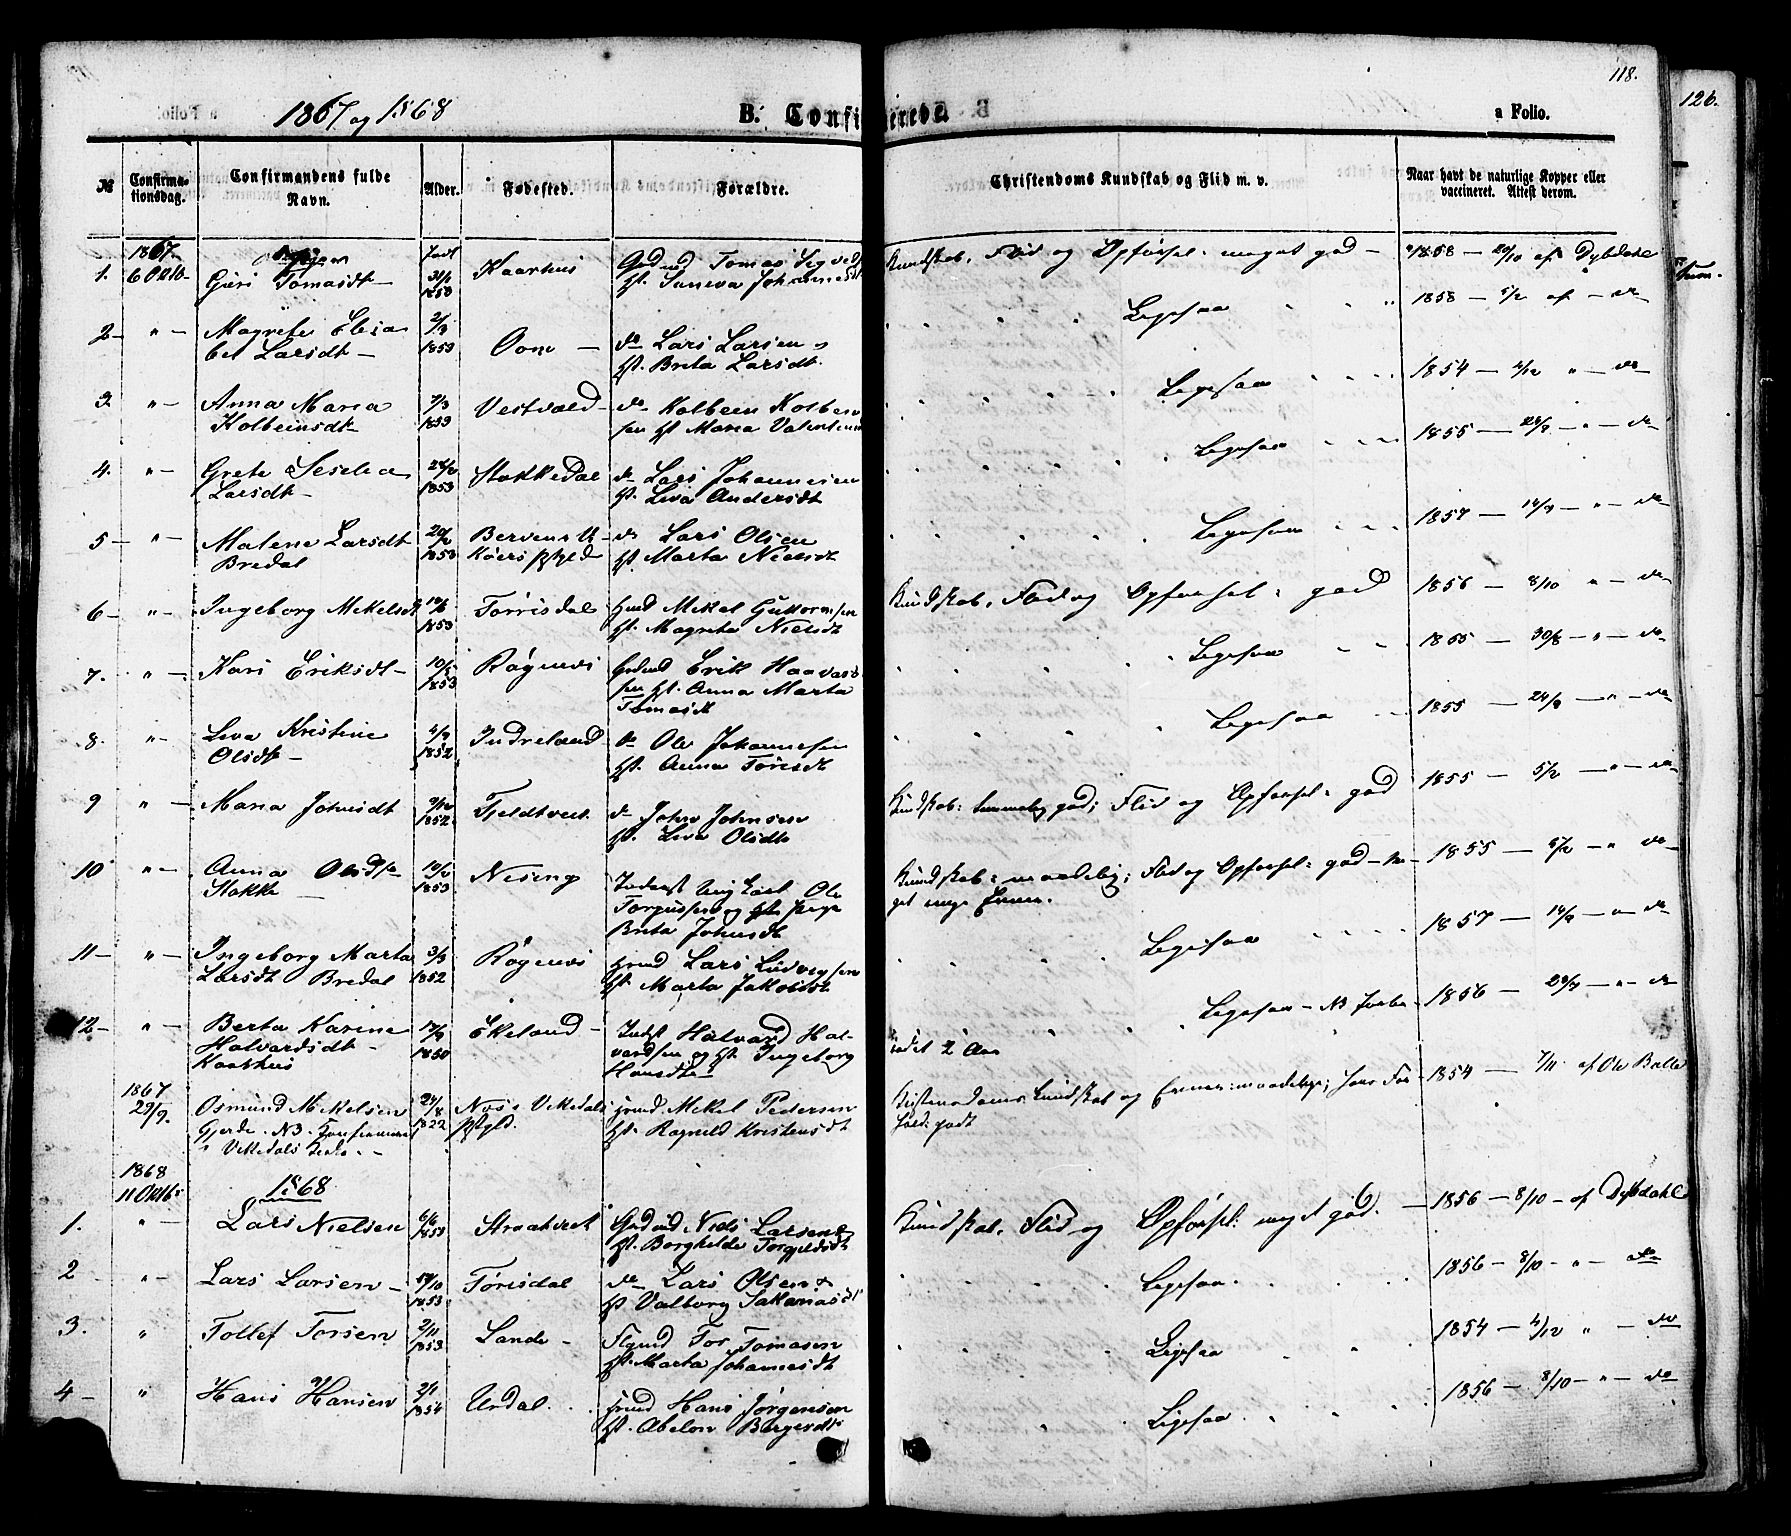 118.
126.
1867 og 1868
B. Confirmerede
a Folio.
№
Confirmationsdag.
Confirmandens fulde Navn.
Alder.
Fødested.
Forældre.
Christendoms Kundskab og Flid m. v.
Naar havt de naturlige Kopper eller vaccineret. Attest derom.
1867
1. 6 Oktb- Guri Tomasdt- Født 31/1 1853 Kaarhus Tomas Sigveds Hst. Suneva Johannesdt Kundskab, Flid og Opførsel: meget god - 1858 - 20/10 af Dybdahl
2- " - Magrete Elisabet Larsdt- 2/3 1853 Oom - do Lars Larsen Hst. Brita Larsdt. Ligesaa 1858 - 5/2 af - do
3. " - Anna Maria Kolbeinsdt- 7/3 1853 Vestvold- do Kolbein Kolbeinsen Hst Maria Ligesaa 1854 - 4/12 " - do
4. " - Grete Seselia Larsdt- 1853 Stokkedal do Lars Johannesen Hst. Leva Andersdt Ligesaa 1855 - - " - do
5- " - Malene Larsdt Bredal 20/2 1853 do Lars Olsen Hst. Marta Nielsdt Ligesaa 1857 - 14/9 - " - do
6- " - Ingeborg Mikelsdt 1853 Torrisdal Grmd Mikel Guttormsen Hst. Magreta Nielsdt Kundskab, Flid og Opførsel: god 1856 - 8/10 " - do
7. " - Kari Eriksdt- 10/5 1853 Røgnevi Erik Haavardsen Hst. Anna Marta Tomasdt Ligesaa 1855 - 30/8 - " - do
8. " - Leva Kristine Olsdt- 4/9 1852 Indreland do Ole Johannesen Hst. Anna Ligesaa 1855 - 24/9 - " - do
9 " - Maria Johnsdt 1852 Fjeldtvet. do John Johnsen Hst. Leva Olsdt Kundskab: temmelig god; Flid og Opførsel: god 1855 - 5/2 - " - do
10 " - Anna Olsdt Stokke 1853 Nesing Inderst Ungkarl Ole Torgussen og Pige Brita Johnsdt Kundskab: maadelig; Flid og Opførsel: god - meget ringe Evner. 1855 - 5/2 - " do
11- " - Ingeborg Marta Larsdt Bredal 3/3 1852 Røgnevi Grmd Lars Ludvigsen Hst. Marta Jakobsdt Ligesaa 1857 - 14/9 - " - do
12- " - Berta Karine Halvardsdt- Kaarhus 17/9 1850 Ekeland - Indst Halvard Halvardsen og Hst Ingeborg Hansdt Ligesaa - NB forberedet 2 Aar 1856 - - " - do
1867 29/9. Osmund Mikelsen Gjerde. NB. Konfirmeret i Vikedals Kirke - 1822 Næs Vikedals Pgld. Grmd Mikel Pedersen Hst. Ragnild Kristensdt Kristendoms Kundskab og Evner: maadelige; hans Forhold: godt 1854 - 7/11 af Ole Balle
1868 11 Oktb.
1868
1. " - Lars Nielsen 6/6 1853 Straatveit Niels Larsen Hst. Borghilde Torgilsdt Kundskab, Flid og Opførsel: meget god. - 1856 - 8/10 - af Dybdahl
2 " - Lars Larsen - 1853 Torisdal do Lars Olsen Hst Valborg Sakariasdt Ligesaa. 1856 - 8/10 - " - do
3. " Tollef Torsen 2/11 1853 Sande - Tor Tomasen Hst. Marta Johannesdt Ligesaa 1854 - 4/12 " - do
4 - " Hans Hansen 2/1 1854 Urdal Grmd Hans Jørgensen Hst. Abelon Børgesdt Ligesaa 1856 - 8/10 - " - do